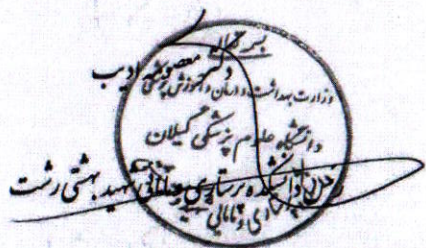 بسمه تعالی
دکتر معصومه ادیب
وزارت بهداشت درمان و آموزش پزشکی
دانشگاه علوم پزشکی گیلان
دانشکده پرستاری مامائی شهید بهشتی رشت